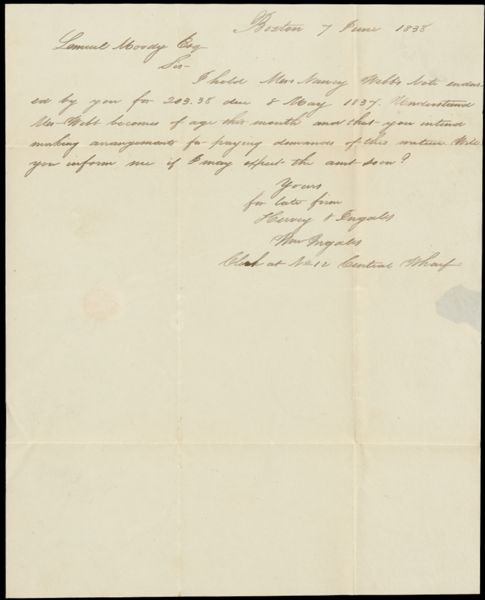 Boston 7 June 1838
Lemuel Moody Esq
Sir
I hold Mrs Nancy Webb's Note endors
ed by you for 203.38 due 8 May 1837. Understand
Mr Webb becomes of age this month and that you intend
making arrangements for paying demands of this nature Will
you inform me if I may expect the amt soon?
Yours
for late firm
Hervey & Ingalls
Wm Ingalls
Clerk at No 12 Central Wharf